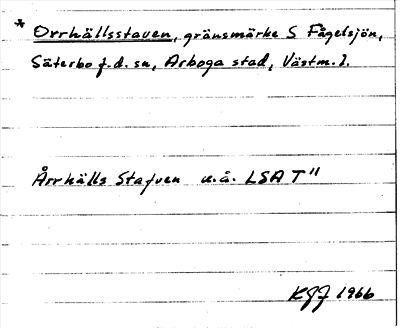 * Orrhällsstaven, gränsmärke S Fågelsjön,
Säterbo f.d. sn, Arboga stad, Västm. l.
Årrhälls Stafven u.å. LSA T"
KGJ 1966